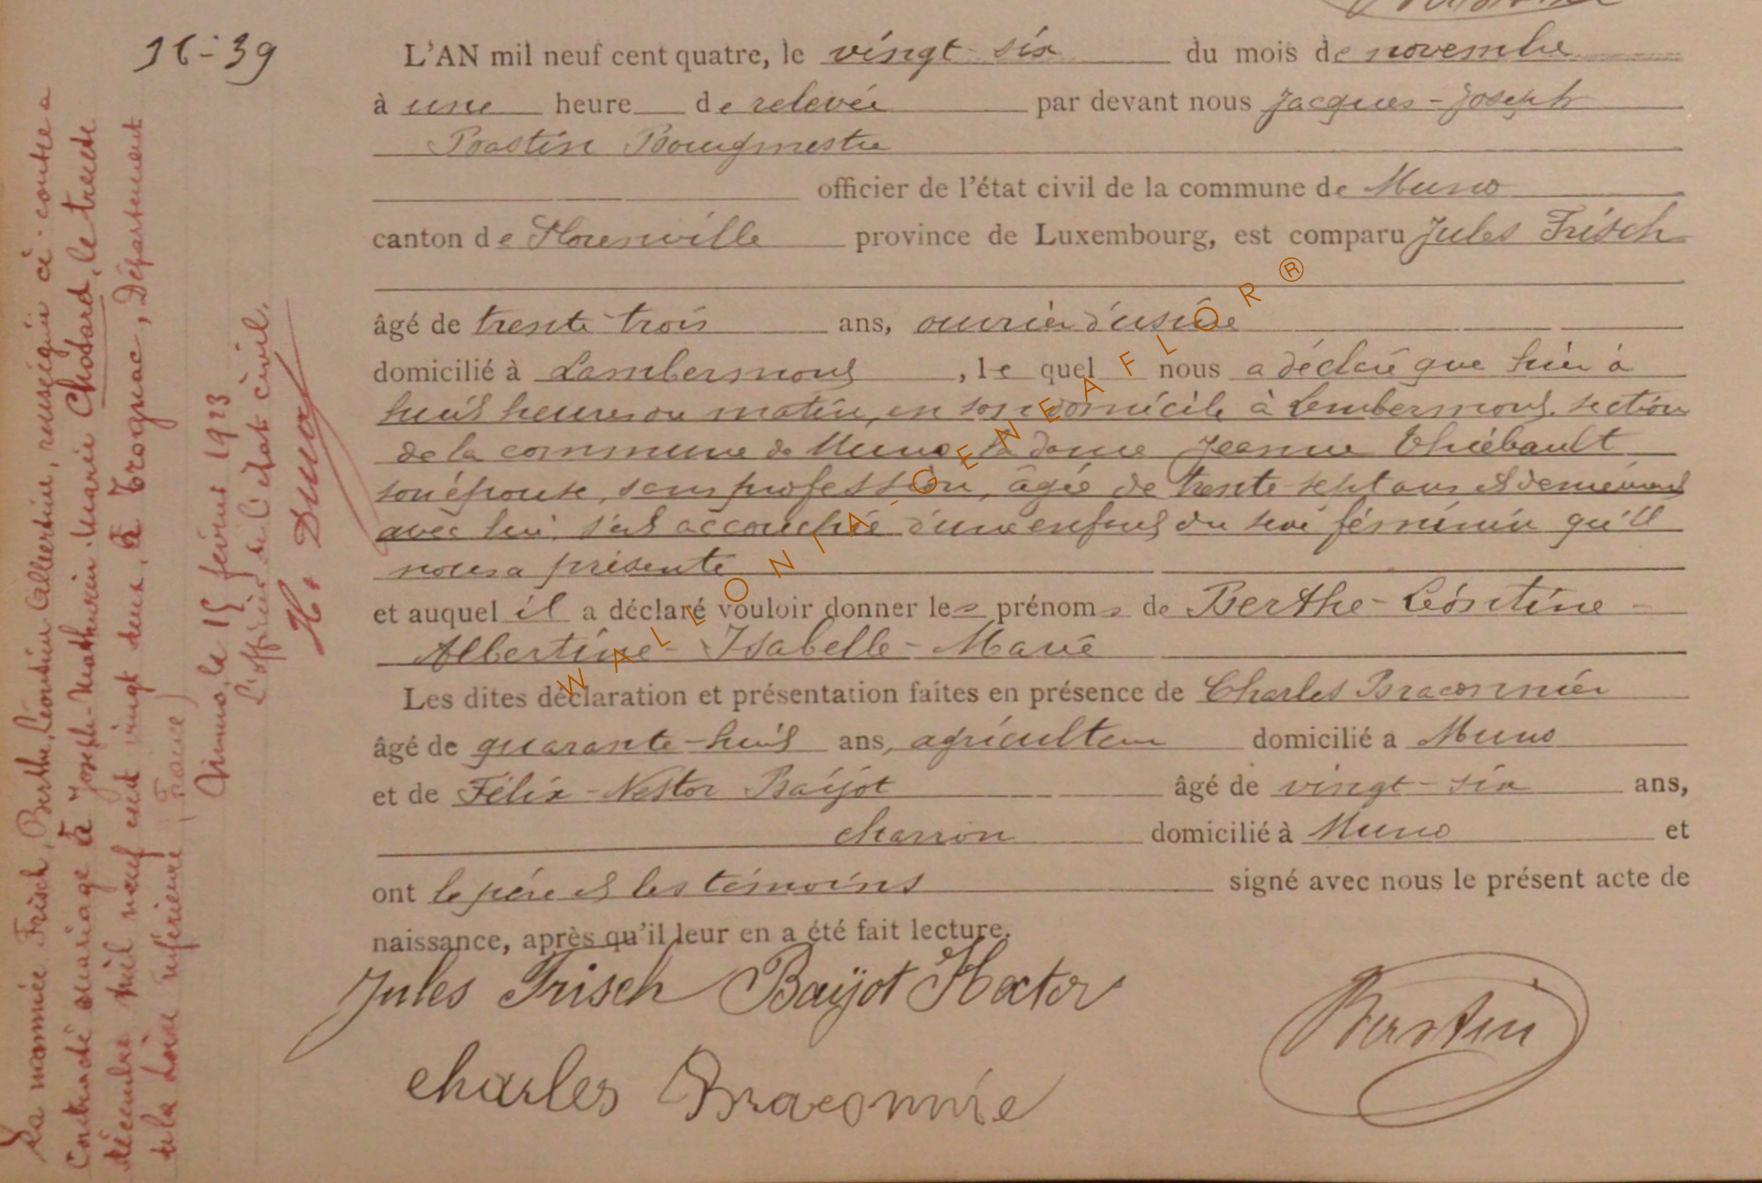 36-39
L'AN mil neuf cent quatre, le vingt-six du mois de novembre
à une heure de relevée par devant nous Jacques-Joseph
Bastin Bourgmestre
officier de l'état civil de la commune de Muno
canton de Florenville province de Luxembourg, est comparu Jules Frisch
âgé de trente trois ans, ouvrier d'usine
domicilié à Lambermont, le quel nous a déclaré que hier à
huit heures du matin, en son domicile à Lambermont, section
de la commune de Muno la dame Jeanne Thiébault
son épouse, sans profession, âgée de trente-sept ans et demeurant
avec lui, s'est accouchée d'un enfant du sexe féminin qu'il
nous a présenté
et auquel il a déclaré vouloir donner les prénoms de Berthe-Léontine-
Albertine-Isabelle-Marie
Les dites déclaration et présentation faites en présence de Charles Braconnier
âgé de quarante-huit ans, agriculteur domicilié a Muno
et de Félix-Nestor Baijot âgé de vingt-six ans,
charron domicilié à Muno et
ont le père et les témoins signé avec nous le présent acte de
naissance, après qu'il leur en a été fait lecture.
Jules Frisch Baijot Hector
Charles Braconnie
Bastin
La nommée Frisch, Berthe, Léontine Albertine, renseignée ci-contre a
contracté mariage à Joseph-Mathurin-Marie Chotard, le trente
décembre mil neuf cent vingt deux, à Trognac, Département
de la Loire inférieure (France)
Muno, le 15 février 1923
L'officier de l'état civil,
WALLONIA-GENEAFLOR®